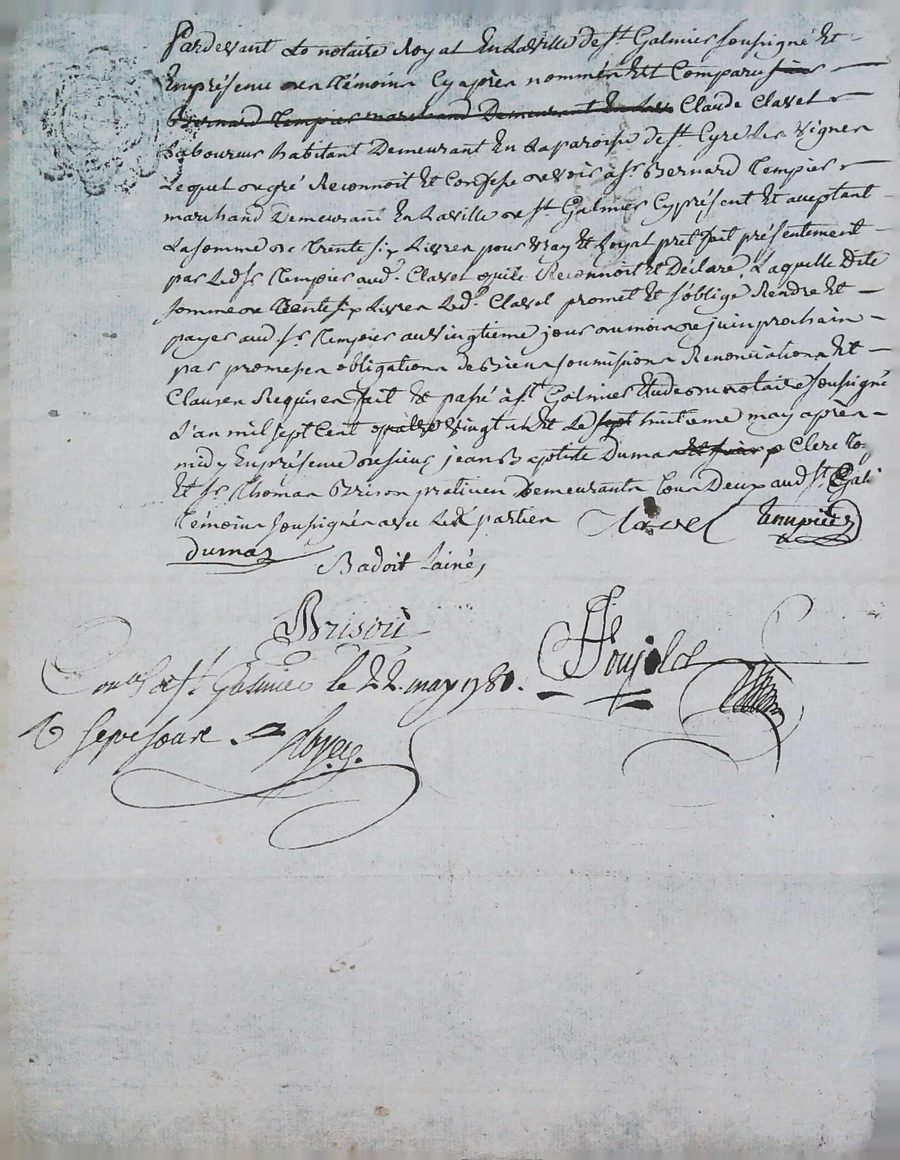 Pardevant Le notaire Royal En La ville de St. Galmier soussigné Et
En présence des témoins Cy après nommés Est Comparu sieur
Bernard Tempier marchand Demeurant En La Claude Clavel
Laboureur habitant Demeurant En La paroisse de St. Cyre les vignes
Lequel de gré Reconnoit Et Confesse devoir à Sr. Bernard Tempier
marchand Demeurant En La ville de St. Galmier Cy présent Et acceptant
La somme de Trente six Livres pour vray Et Loyal prêt fait présentement
par Led. Sr. Tempier aud. Clavel qui le Reconnoit Et Déclare, Laquelle dite
somme de Trente six Livres Led. Clavel promet Et s'oblige Rendre Et
payer aud. Sr. Tempier au vingtieme jour du mois de juin prochain
par promesses obligations de Biens soumissions Renonciations Et
Clauses Requises fait Et passé à St. Galmier Etude du notaire soussigné
L'an mil sept Cent quatre vingt Et Le sept huitieme may après
midy En présence de sieur jean Baptiste Dumas Clerc
Et Sr. Thomas Brison praticien Demeurants tous Deux aud. St. Gal
témoins soussignés avec Led. parties Clavel Tempier
Dumas
Badoit Lainé
Brison
Conllé à St. Galmier le 22. may 1780.
sept sous